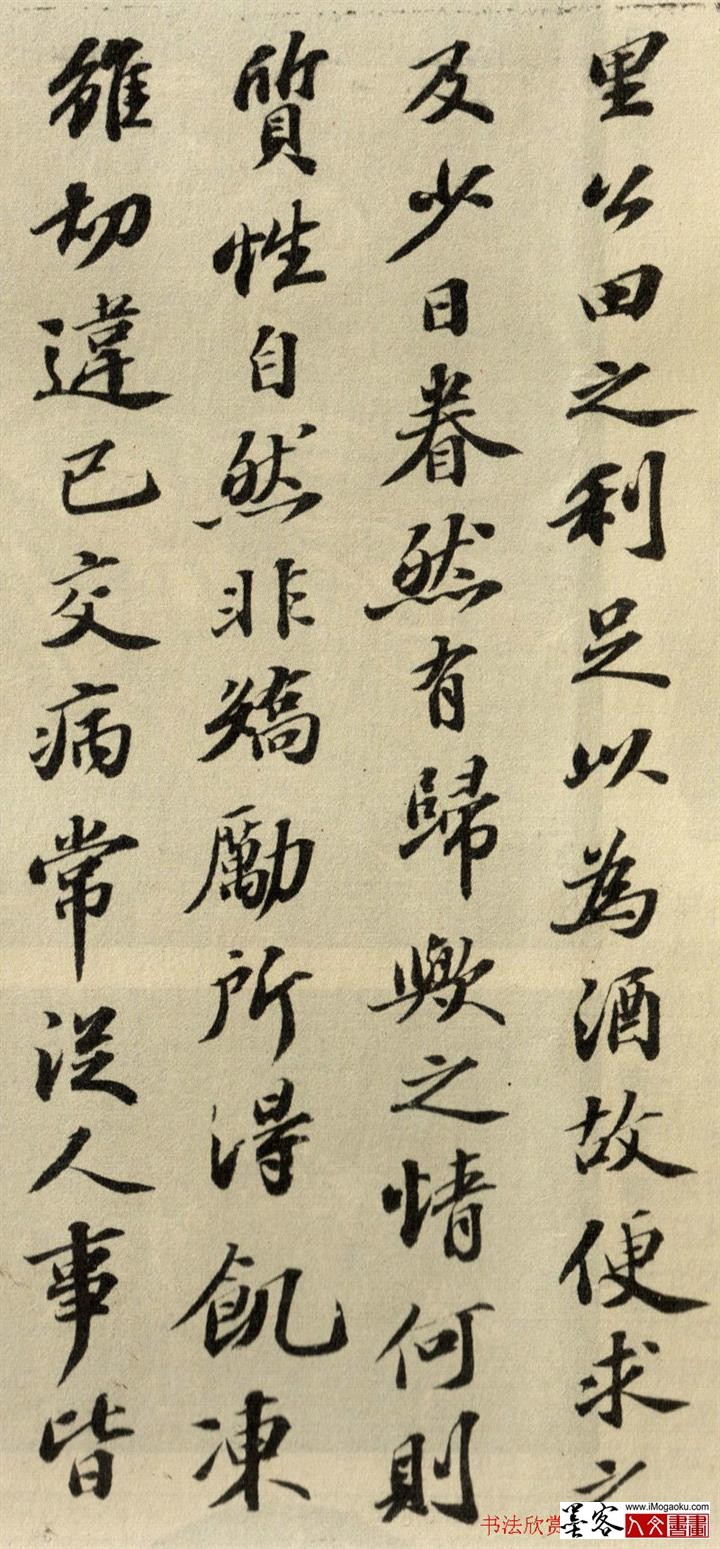 里公田之利足以為酒故便求之
及少日眷然有歸歟之情何則
質性自然非矯勵所得飢凍
雖切違己交病常從人事皆
书法欣赏
墨客
www.iMogaoku.com
人文書畫